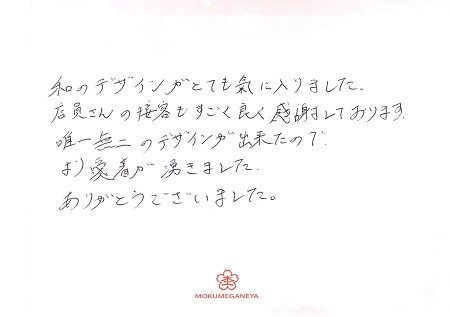 和のデザインがとても気に入りました.
店員さんの接客もすごく良く感謝しております.
唯一無二のデザインが出来たので.
より愛着が湧きました.
ありがとうございました。
MOKUMEGANEYA